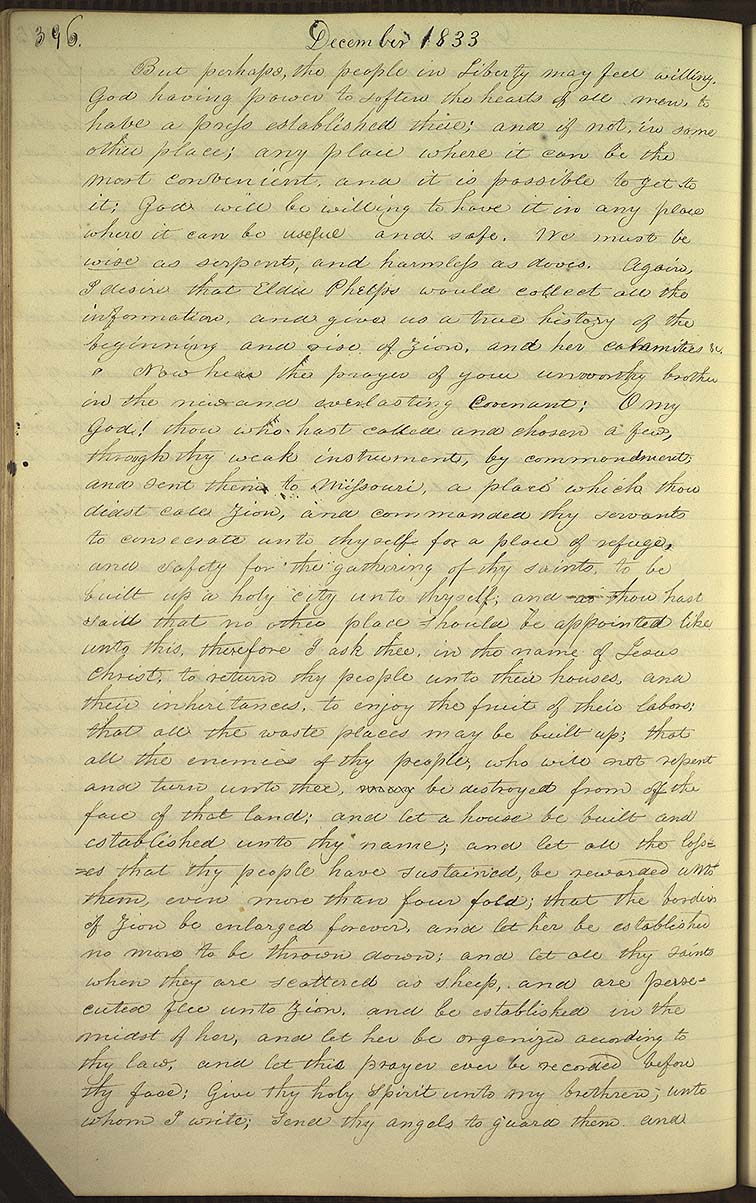 396.
December 1833
But perhaps, the people in Liberty may feel willing,
God having power to soften the hearts of all men, to
have a press established there; and if not, in some
other place; any place where it can be the
most convenient, and it is possible to get to
it; God will be willing to have it in any place
where it can be useful and safe. We must be
wise as serpents, and harmless as doves. Again,
I desire that Elder Phelps would collect all the
information, and give us a true history of the
beginning and rise of Zion, and her calamities &c.
Now hear the prayer of your unworthy brother
in the new and everlasting covenant; O my
God! thou who hast called and chosen a few,
through thy weak instrument, by commandment,
and sent them to Missouri, a place which thou
didst call Zion, and commanded thy servants
to consecrate unto thyself for a place of refuge,
and safety for the gathering of thy saints, to be
built up a holy city unto thyself; and as thou hast
said that no other place should be appointed like
unto this, therefore I ask thee, in the name of Jesus
Christ, to return thy people unto their houses, and
their inheritances, to enjoy the fruit of their labors;
that all the waste places may be built up; that
all the enemies of thy people, who will not repent
and turn unto thee, may be destroyed from off the
face of that land; and let a house be built and
established unto thy name; and let all the loss=
=es that thy people have sustained, be rewarded unto
them, even more than four fold; that the borders
of Zion be enlarged forever, and let her be established
no more to be thrown down; and let all thy saints
when they are scattered as sheep, and are perse=
cuted flee unto Zion, and be established in the
midst of her, and let her be organized according to
thy law, and let this prayer ever be recorded before
thy face; Give thy holy Spirit unto my brethren, unto
whom I write; send thy angels to guard them and